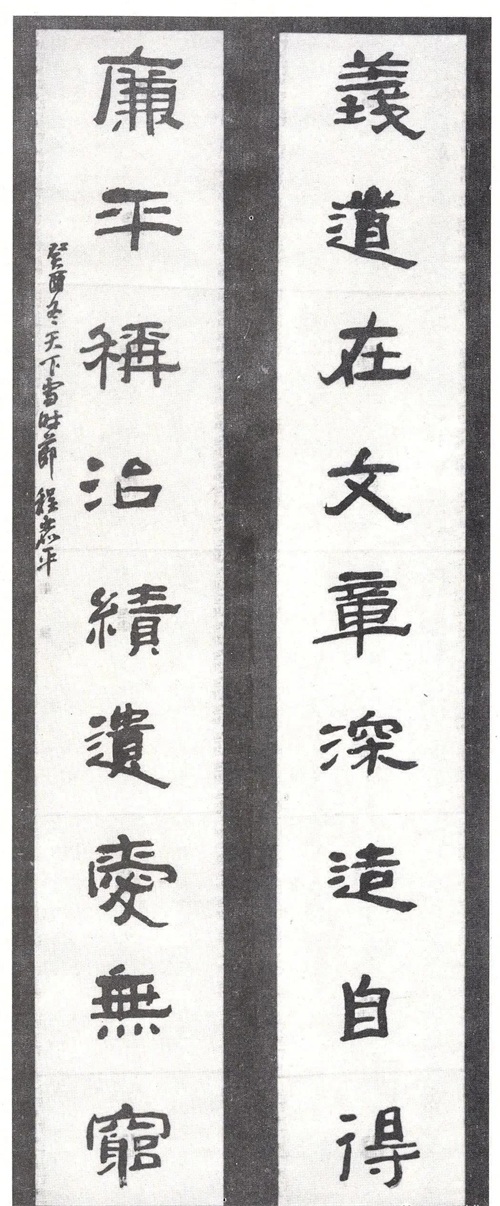 義道在文章深造自得
廉平稱治績遺愛無窮
癸酉冬天下雪時節 程
平